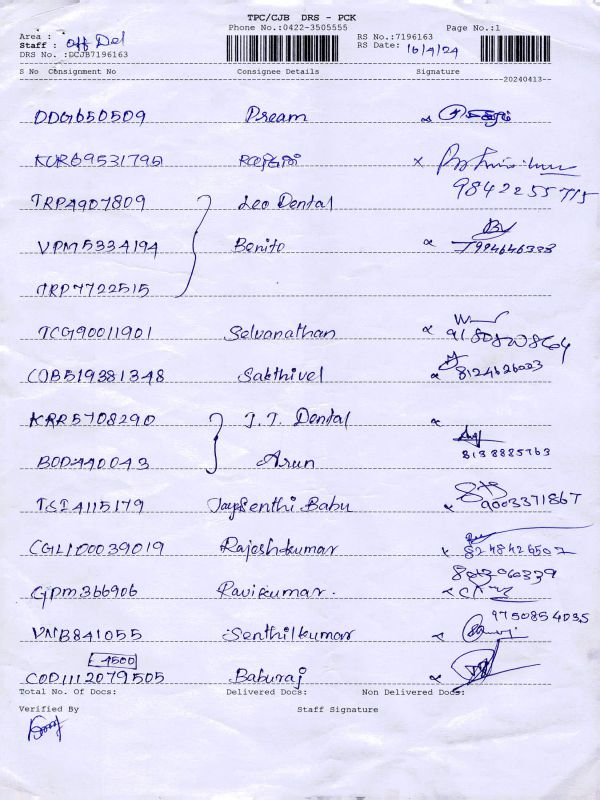 TPC/CJB DRS - PCK
Phone No.:0422-3505555
Page No.:1
Area : Off Del
Staff :
DRS No. :DCJB7196163
RS No.:7196163
RS Date: 16/4/24
S No Consignment No Consignee Details Signature
20240413
DDG650509 Pream
KUR69531795
TRP4907809 Leo Dental
VPM5334194 Benito 7994646338
TRP7722515
TCG90011901 Selvanathan
COB519381348 Sakthivel 8124626023
KRR5708290 J.J. Dental
BOD440043 Arun 8138885763
TSI4115179 JaySenthi Babu 9003371867
CGL100039019 Rajeshkumar 8248426502
GPM366906 Ravikumar.
VNB841055 Senthilkumar 9750854035
4500
COD1112079505 Baburaj
Total No. Of Docs: Delivered Docs: Non Delivered Docs:
Verified By Staff Signature